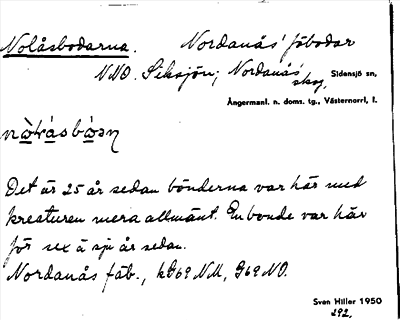 Nolåsbodarna. Nordanås' fäbodar
NNO. Siksjön; Nordanås' Sidensjö sn,
skog,
Ångermanl. n. doms. tg., Västernorrl. l.
Det är 25 år sedan bönderna var här med
kreaturen mera allmänt. En bonde var här
för sex à sju år sedan.
Nordanås fäb., NO.
Sven Hiller 1950
292.